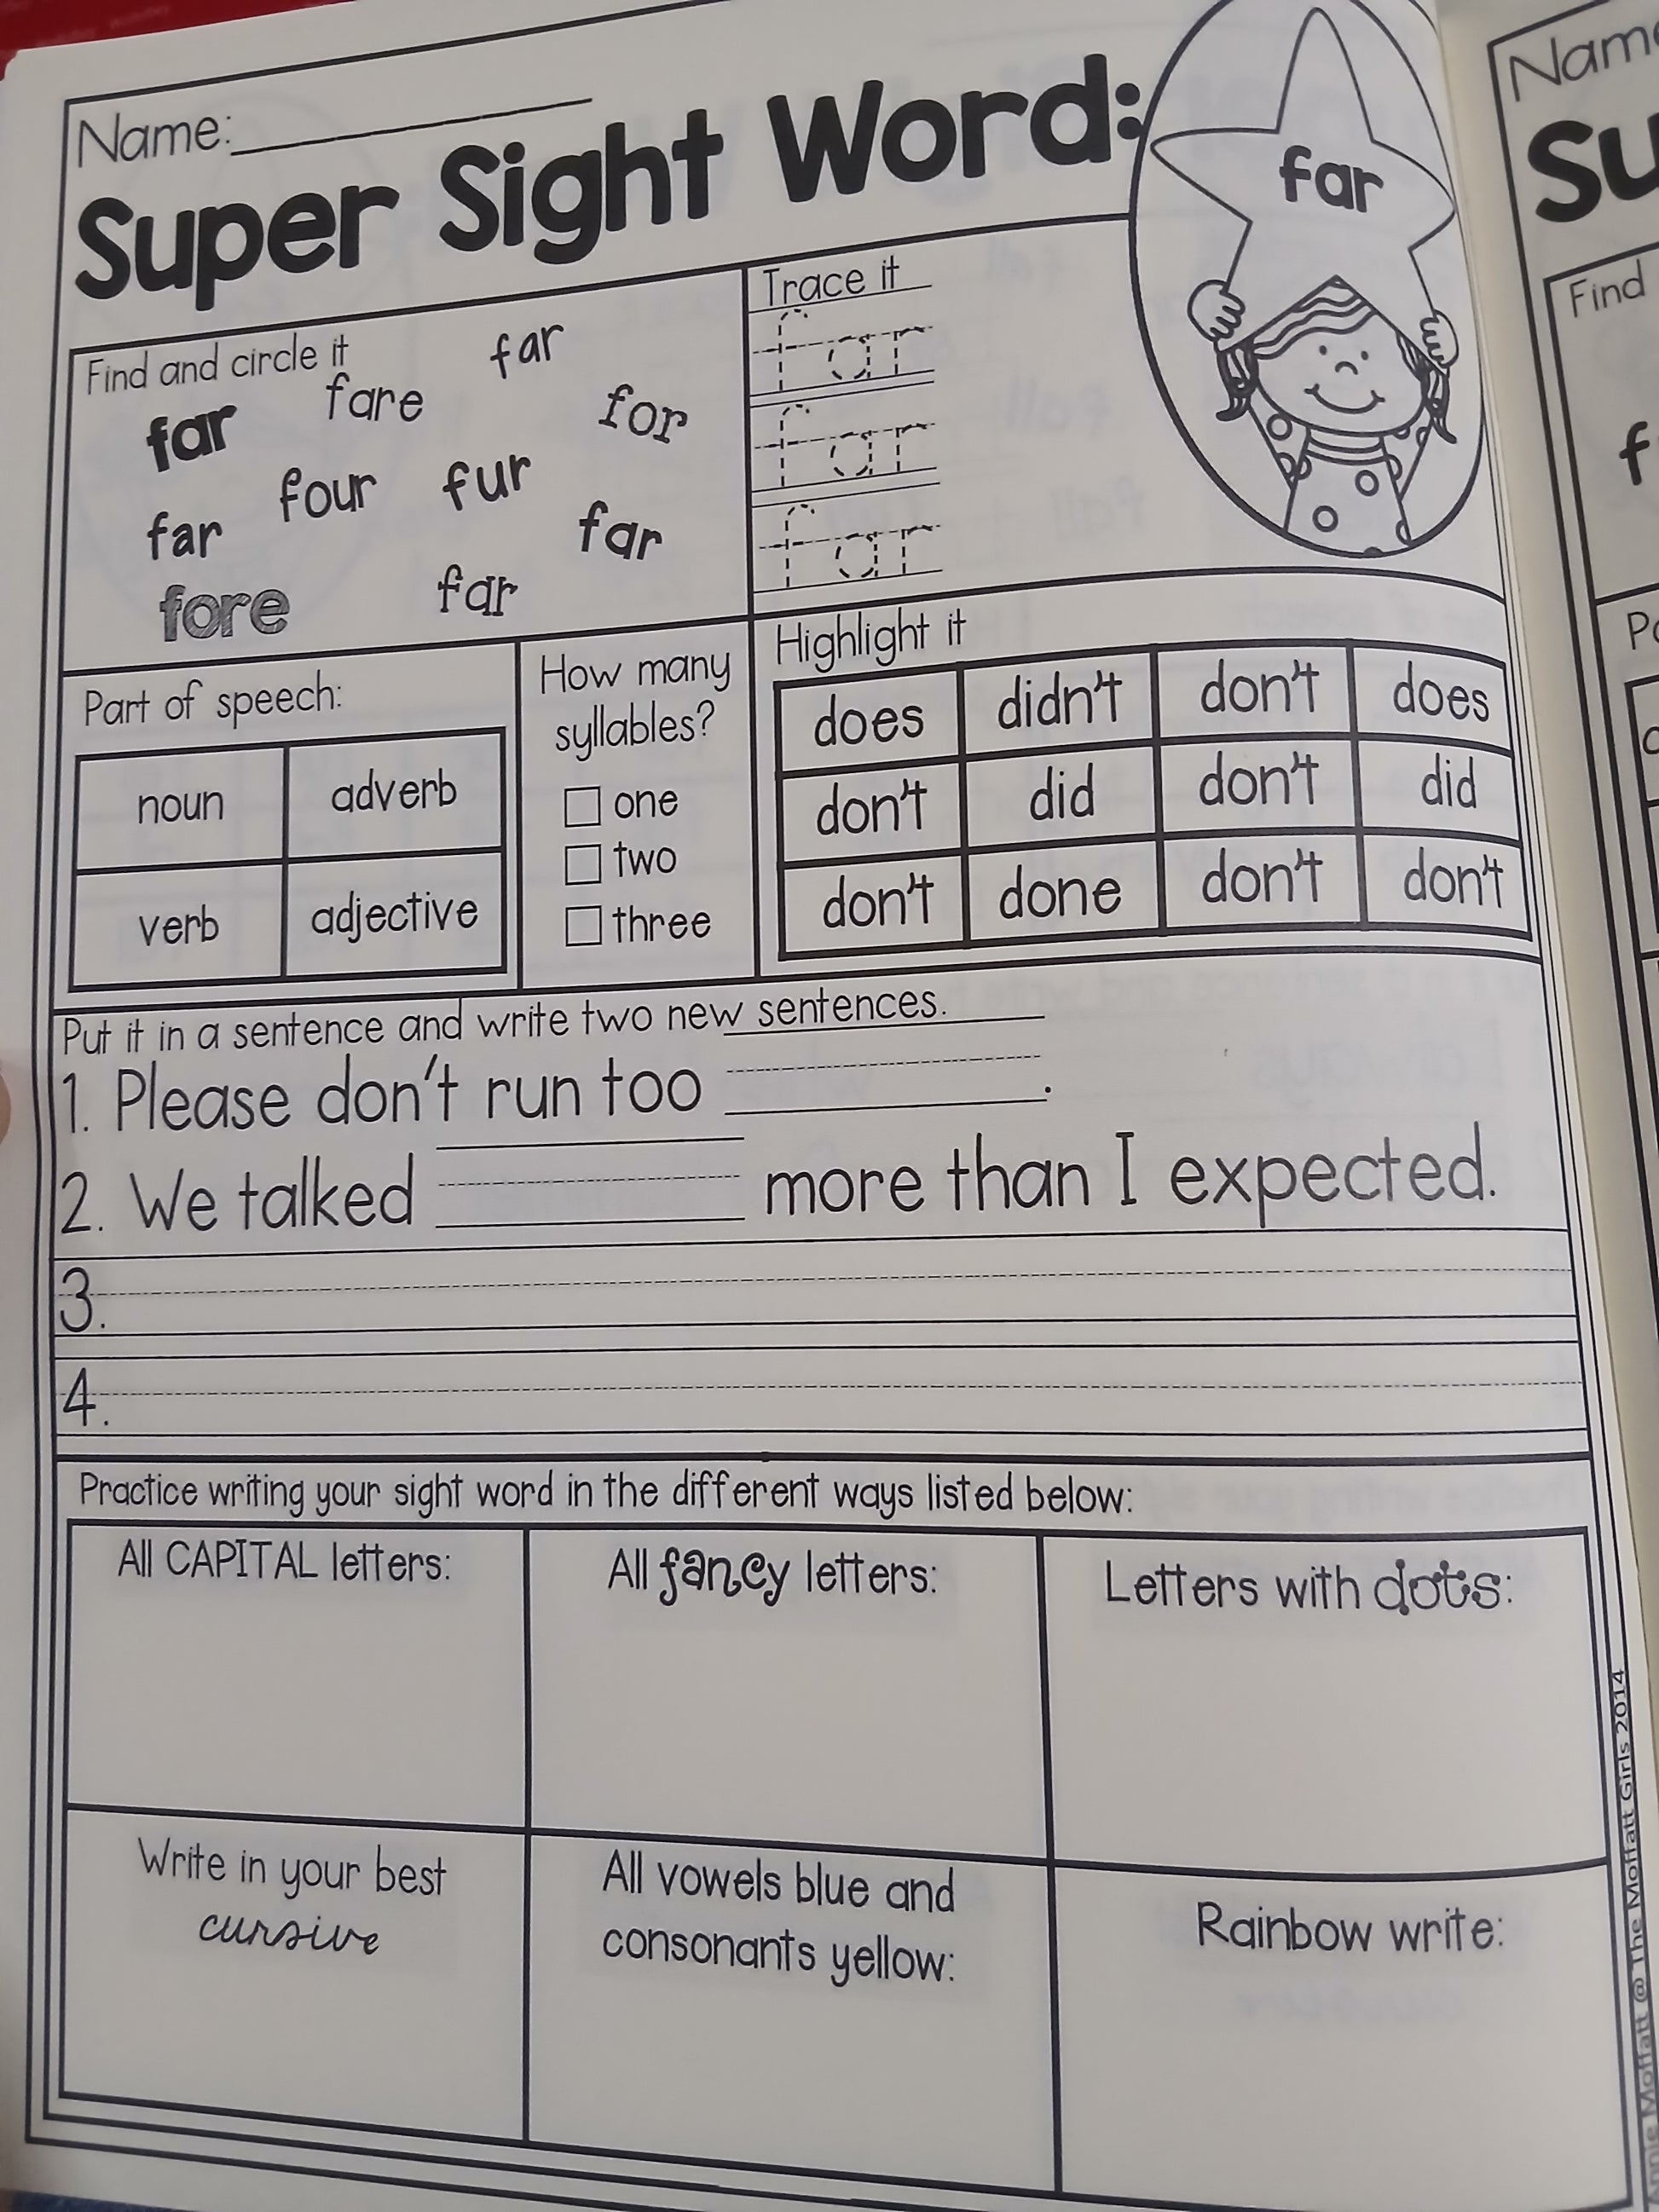 Name:
Super Sight Word:
far
Find and circle it
far
fare
for
far
four
fur
far
far
fore
far
Trace it
far
far
far
Part of speech:
noun adverb
verb adjective
How many
syllables?
one
two
three
Highlight it
does didn't don't does
don't did don't did
don't done don't don't
Put it in a sentence and write two new sentences.
1. Please don't run too .
2. We talked more than I expected.
3.
4.
Practice writing your sight word in the different ways listed below:
All CAPITAL letters:
All fancy letters:
Letters with dots:
Write in your best
cursive
All vowels blue and
consonants yellow:
Rainbow write:
Moffatt @ The Moffatt Girls 2014
Find